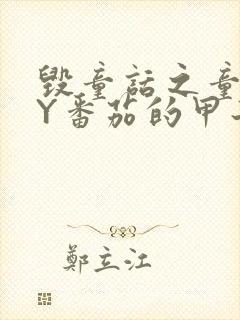 毁童话之童
Y番茄的甲
鄭立江